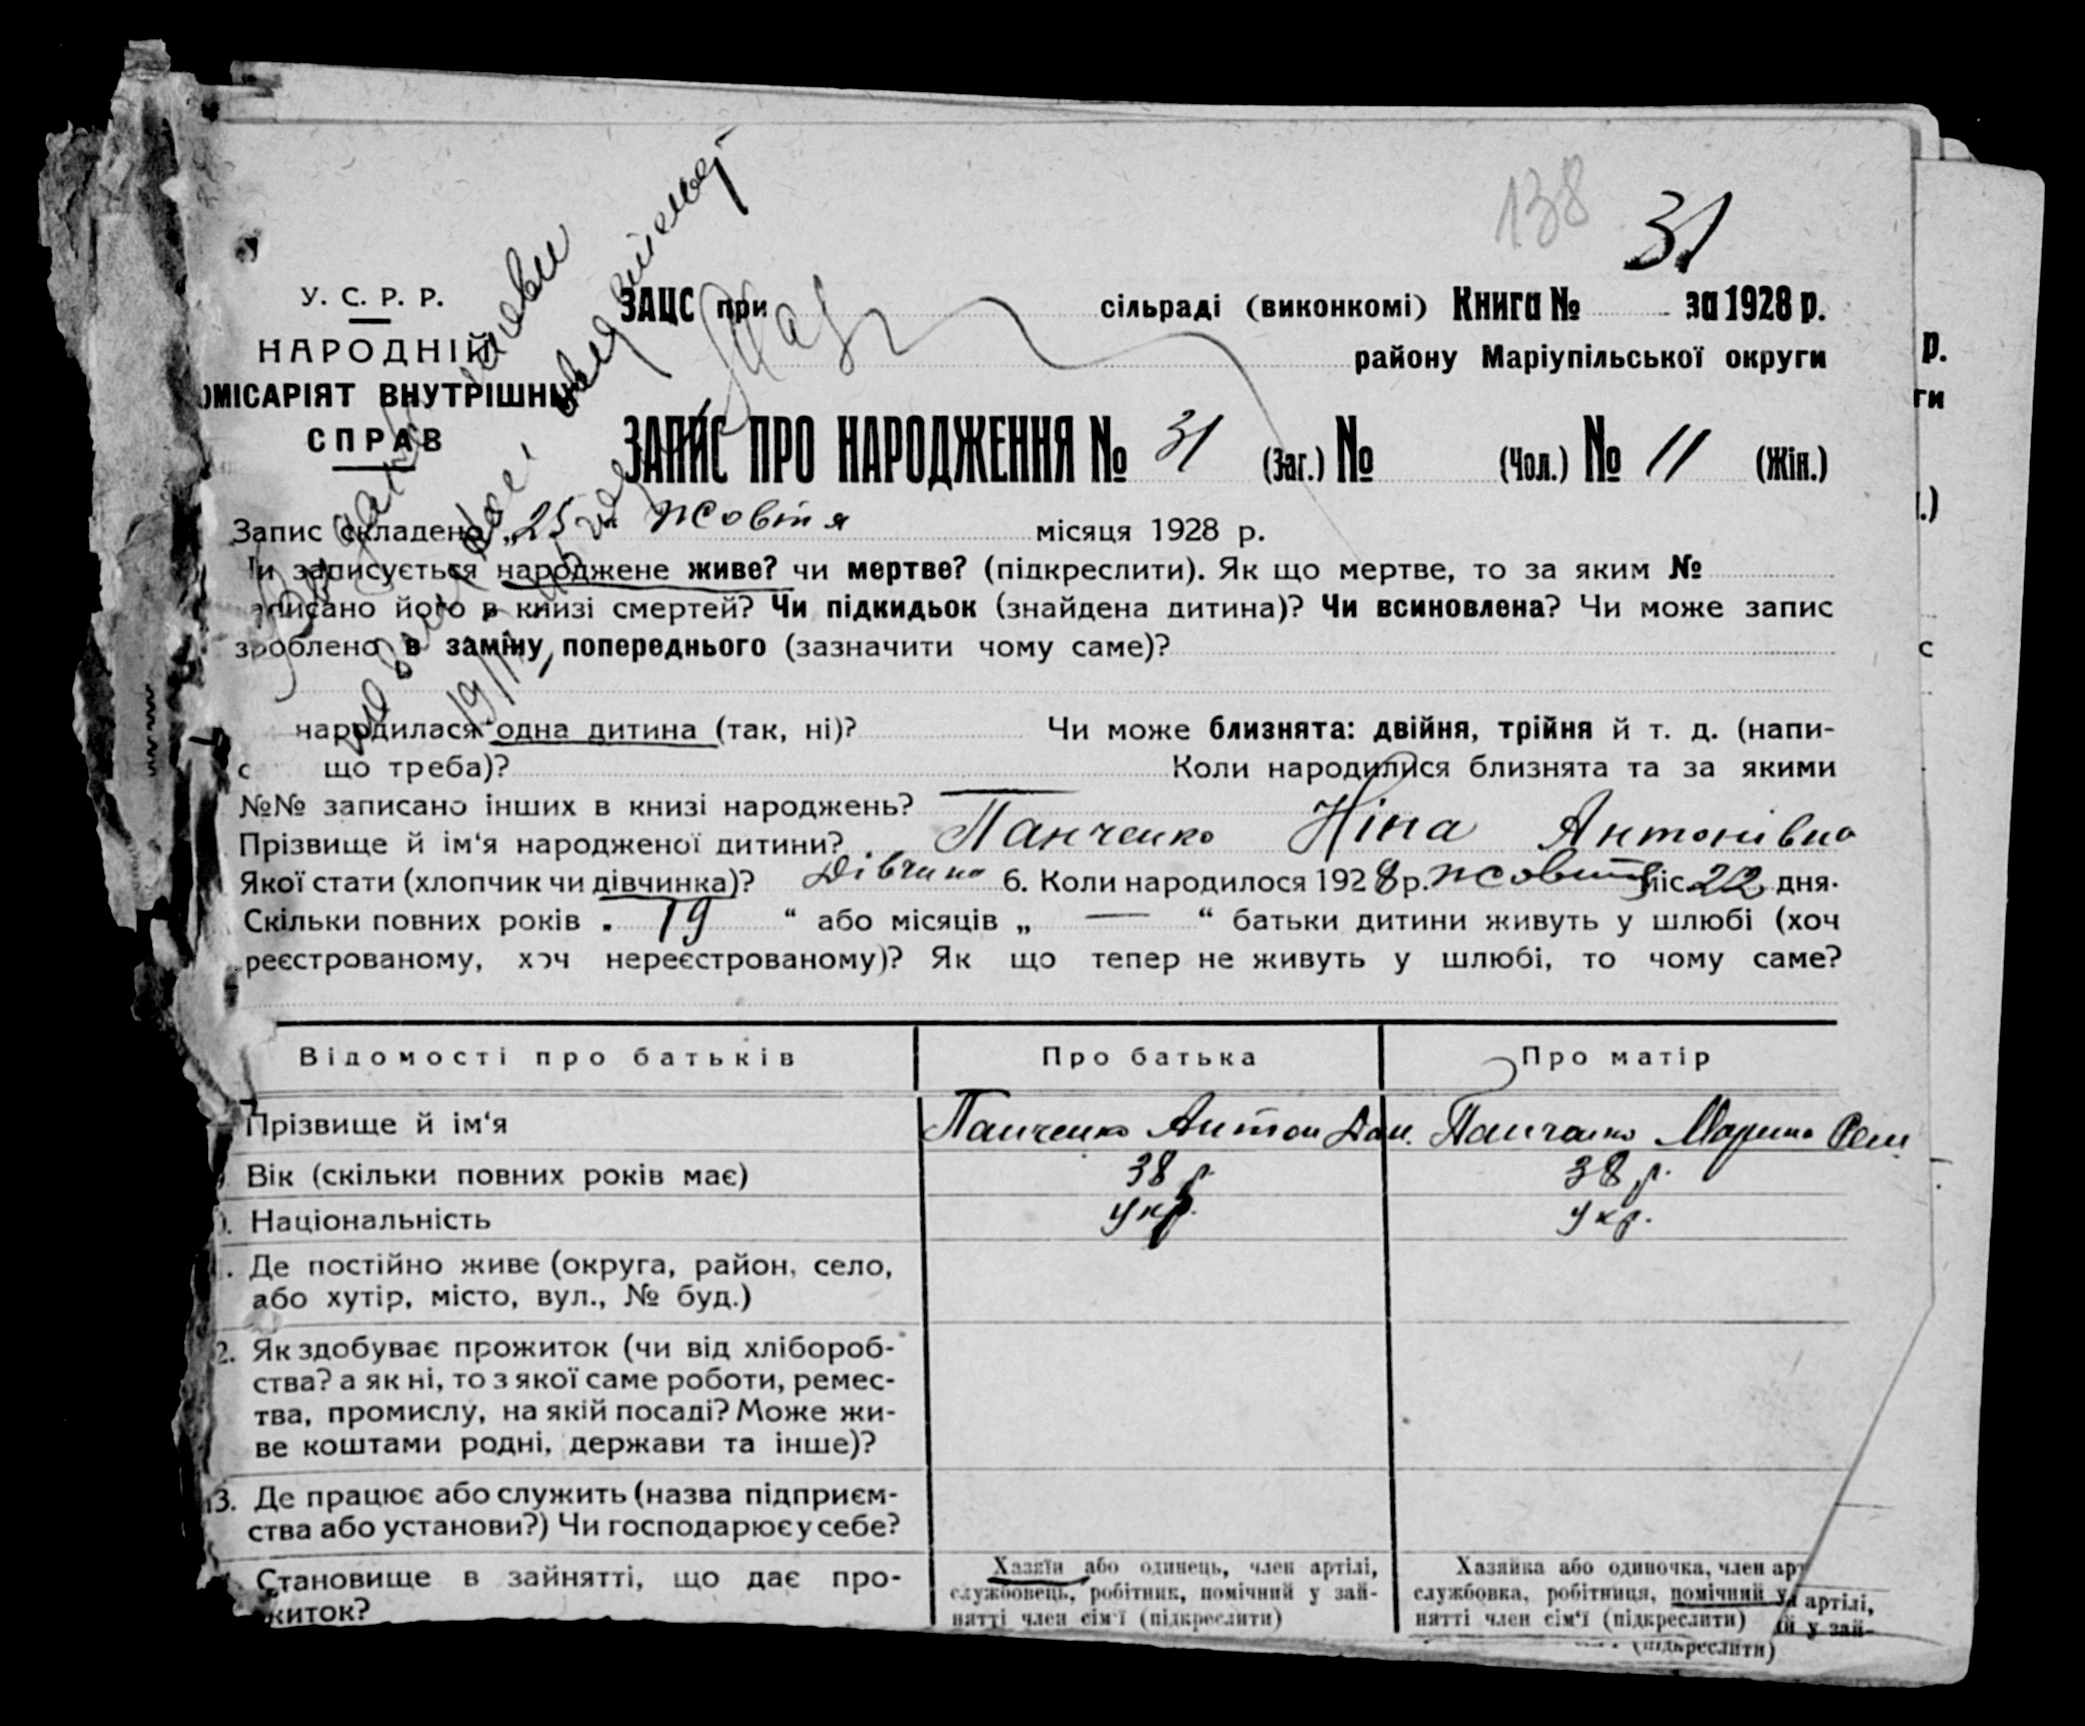 138
31
У. С. Р. Р.
НАРОДНІЙ
ОМІСАРІЯТ ВНУТРІШНІХ
СПРАВ
ЗАЦС при сільраді (виконкомі) Книга № за 1928 р.
району Маріупільської округи
ЗАПИС ПРО НАРОДЖЕННЯ № 31 (Заг.) № (Чол.) № 11 (Жін.)
Запис складено „25“ жовтня місяця 1928 р.
и записується народжене живе? чи мертве? (підкреслити). Як що мертве, то за яким №
аписано його в книзі смертей? Чи підкидьок (знайдена дитина)? Чи всиновлена? Чи може запис
зроблено в заміну попереднього (зазначити чому саме)?
народилася одна дитина (так, ні)? Чи може близнята: двійня, трійня й т. д. (напи-
с що треба)? Коли народилися близнята та за якими
№№ записано інших в книзі народжень? —
Прізвище й ім‘я народженої дитини? Панченко Ніна Антонівна
Якої стати (хлопчик чи дівчинка)? Дівчина 6. Коли народилося 1928 р. жовтня міс. 22 дня.
Скільки повних років „ 19 “ або місяців „ — “ батьки дитини живуть у шлюбі (хоч
реєстрованому, хоч нереєстрованому)? Як що тепер не живуть у шлюбі, то чому саме?
Відомості про батьків Про батька Про матір
Прізвище й ім‘я Панченко Антон Дан. Панченко Марина
Вік (скільки повних років має) 38 р. 38 р.
Національність Укр. Укр.
Де постійно живе (округа, район, село,
або хутір, місто, вул., № буд.)
2. Як здобуває прожиток (чи від хлібороб-
ства? а як ні, то з якої саме роботи, ремес-
тва, промислу, на якій посаді? Може жи-
ве коштами родні, держави та інше)?
13. Де працює або служить (назва підприєм-
ства або установи?) Чи господарює у себе?
Становище в зайнятті, що дає про-
житок?
Хазяїн або одинець, член артілі,
службовець, робітник, помічний у зай-
нятті член сім‘ї (підкреслити)
Хазяйка або одиночка, член арт
службовка, робітниця, помічний у
нятті член сім‘ї (підкреслити)
артілі,
й у зай-
(підкреслити)
р.
ги
.)
с